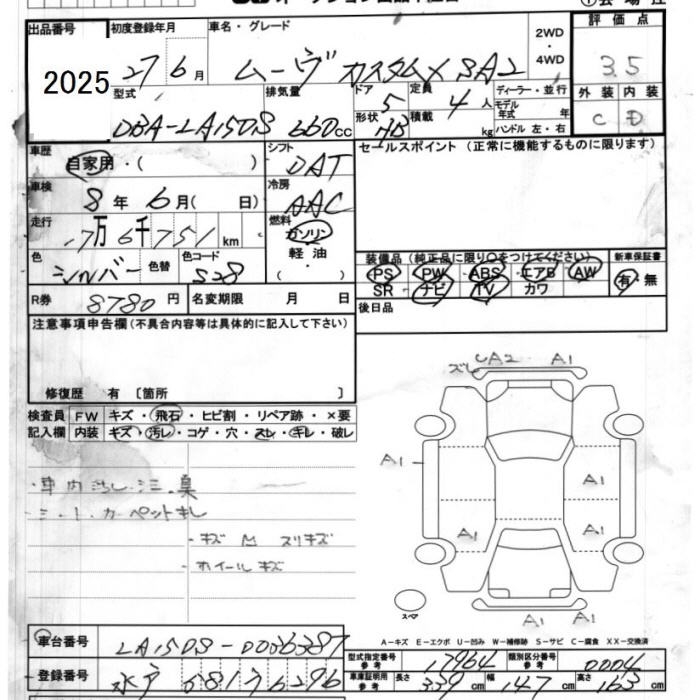 出品番号 初度登録年月 車名・グレード 2WD・4WD 評価点
2025 27 6月 ムーヴ カスタムX SAⅡ 3.5
外装 内装
C D
型式 排気量 ドア形状 定員 積載 ディーラー・並行
DBA-LA150S 660cc 5 HB 4人 kg モデル年式 年
ハンドル 左・右
車歴 シフト セールスポイント (正常に機能するものに限ります)
自家用・( ) DAT
車検 冷房
8年 6月( 日) AAC
走行 燃料
7万6千751km ガソリン
軽油
( )
色 色替 色コード
シルバー S28
装備品 (純正品に限り○をつけてください) 新車保証書
PS PW ABS エアB AW 有・無
SR ナビ TV カワ
R券 8780円 名変期限 月 日
後日品
注意事項申告欄(不具合内容等は具体的に記入して下さい)
修復歴 有 〔箇所 〕
検査員 FW キズ・飛石・ヒビ割・リペア跡・×要
記入欄 内装 キズ・汚レ・コゲ・穴・スレ・キレ・破レ
・車内汚レ・シミ・臭
・シート・カーペットキレ
・キズ M スリキズ
ホイールキズ
ズレ UA2 A1
A1
A1
A1
A1
A1 A1
スペア
A-キズ E-エクボ U-凹み W-補修跡 S-サビ C-腐食 XX-交換済
車台番号 LA150S-0036387
登録番号 水戸 581 ﾌ 6296
型式指定番号 参考 17964 類別区分番号 参考 0004
車庫証明用 参考 長さ 339cm 幅 147cm 高さ 163cm